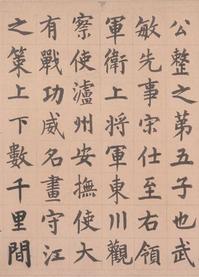 公整之第五子也武
敏先事宋仕至右領
軍衛上将軍東川觀
察使瀘州安撫使大
有戰功威名畫守江
之策上下數千里間